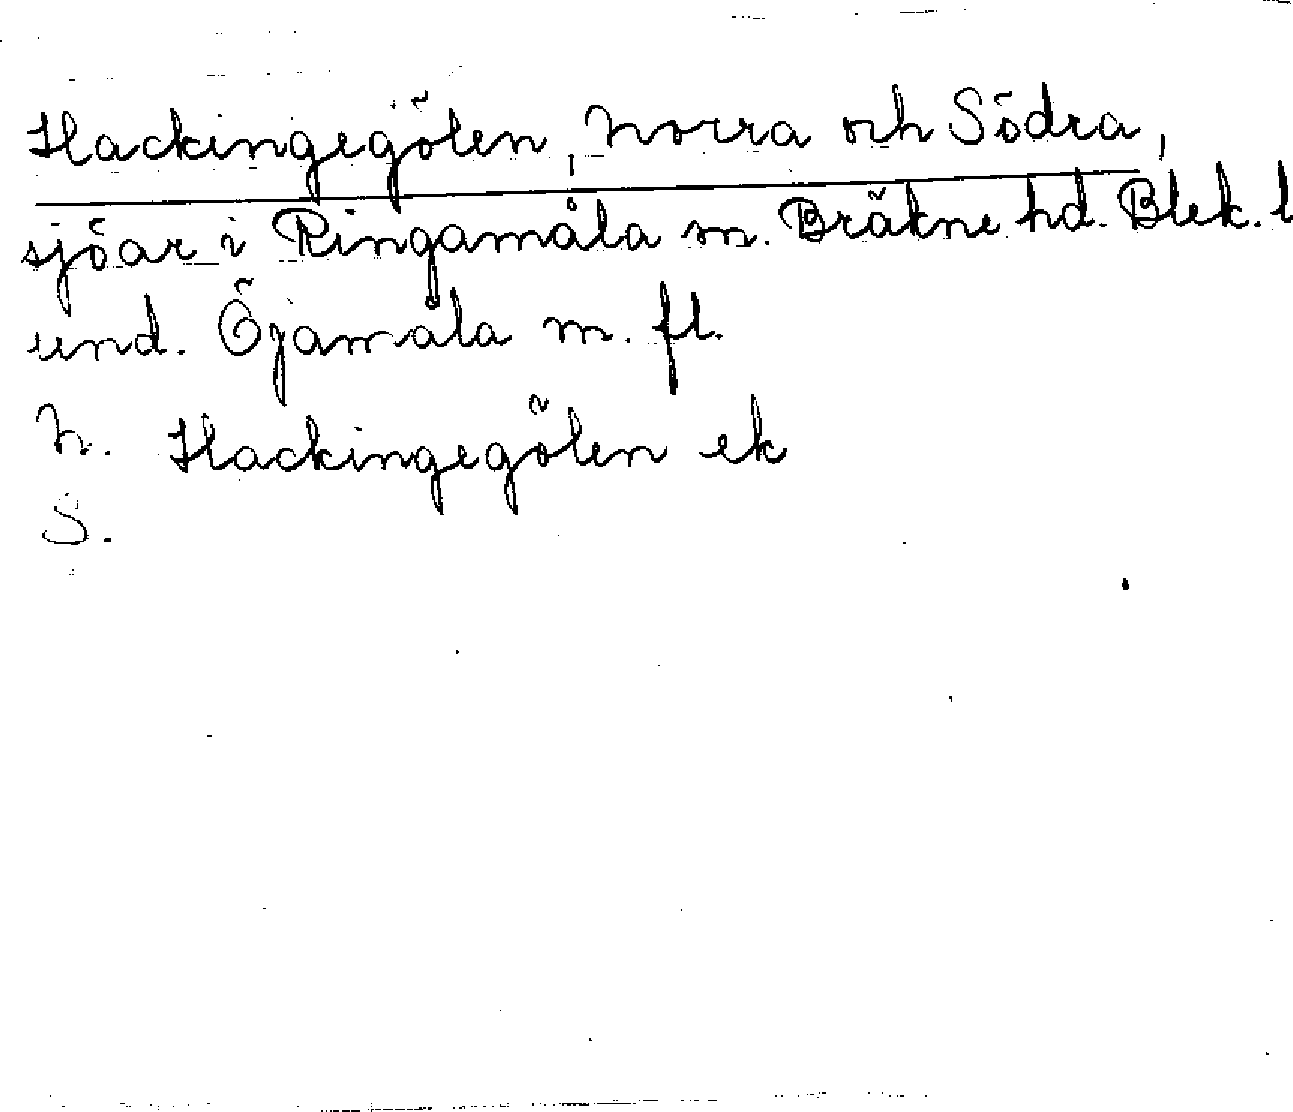 Hackingegölen, Norra och Södra,
sjöar i Ringamåla sn. Bräkne hd. Blek. l
und. Öjamåla m. fl.
N. Hackingegölen ek
S.